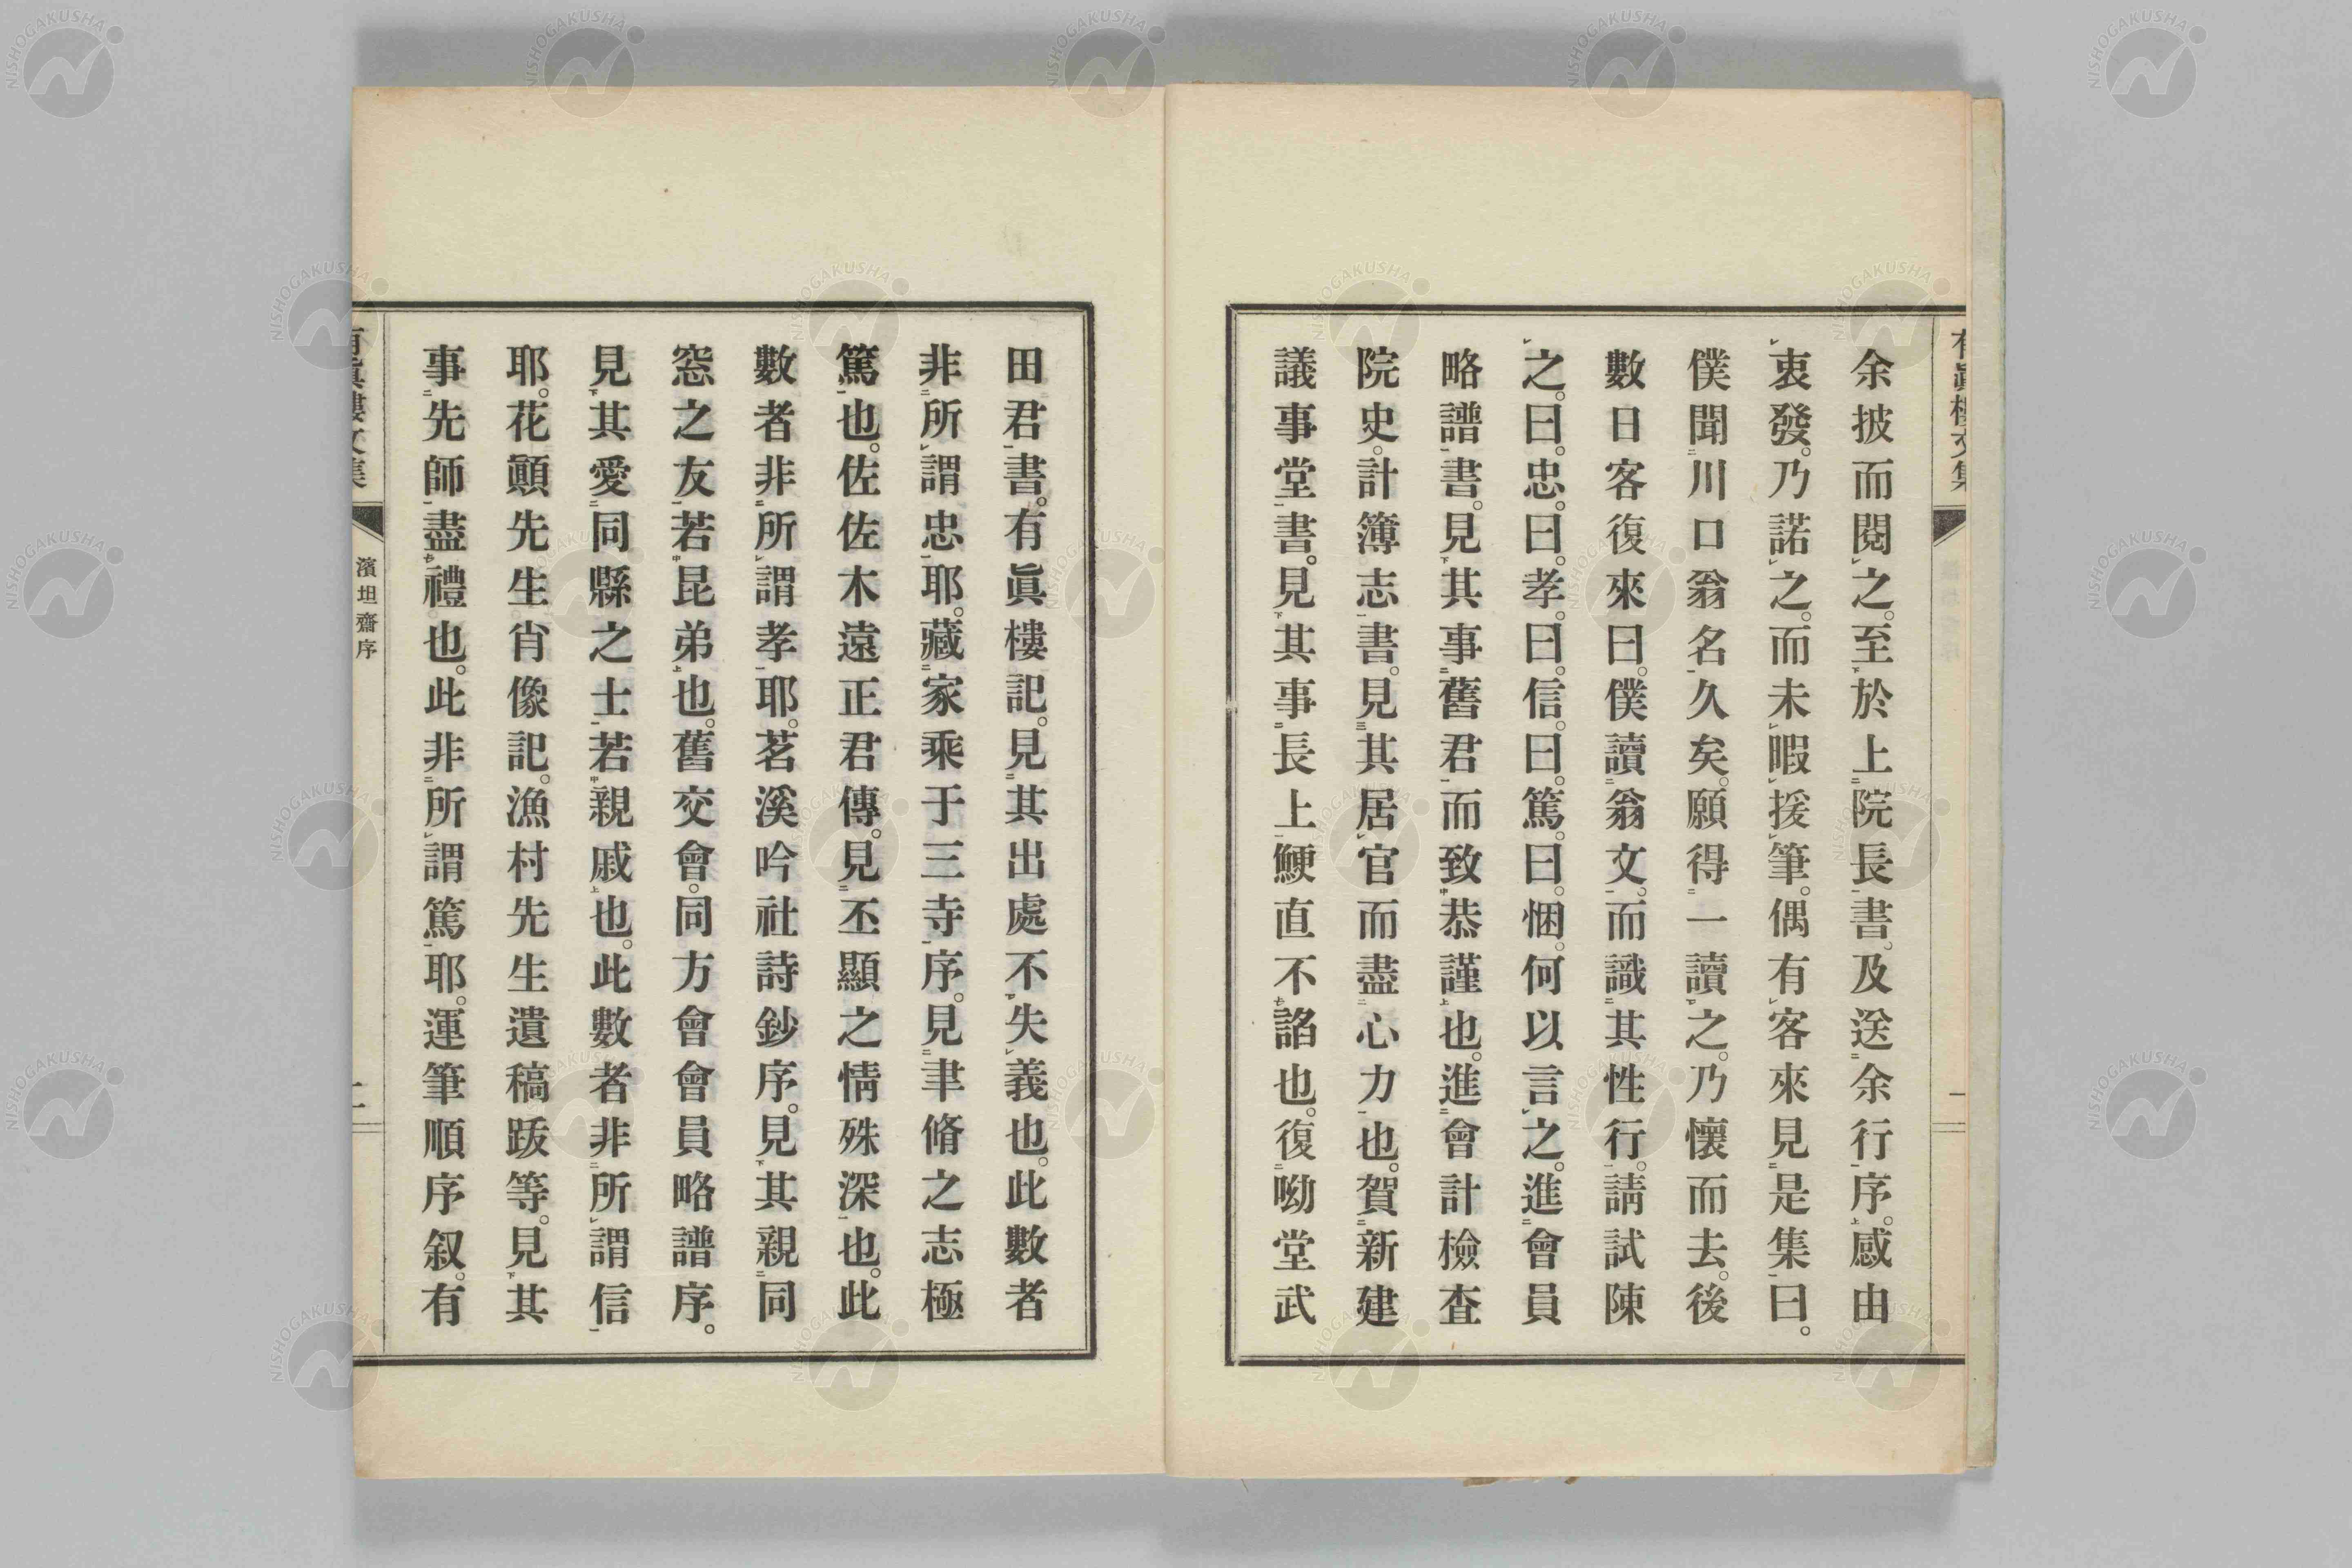 余披而閱之。至於上院長書。及送余行序。感由
衷發。乃諾之。而未暇援筆。偶有客來見是集曰。
僕聞川口翁名久矣。願得一讀之。乃懷而去。後
數日客復來曰。僕讀翁文。而識其性行。請試陳
之。曰。忠。曰。孝。曰。信。曰。篤。曰。悃。何以言之。進會員
略譜書。見其事舊君而致恭謹也。進會計檢查
院史。計簿志書。見其居官而盡心力也。賀新建
議事堂書。見其事長上鯁直不諂也。復呦堂武
田君書。有眞樓記。見其出處不失義也。此數者
非所謂忠耶。藏家乘于三寺序。見聿脩之志極
篤也。佐佐木遠正君傳。見丕顯之情殊深也。此
數者非所謂孝耶。茗溪吟社詩鈔序。見其親同
窓之友若昆弟也。舊交會。同方會會員略譜序。
見其愛同縣之士若親戚也。此數者非所謂信
耶。花顚先生肖像記。漁村先生遺稿跋等。見其
事先師盡禮也。此非所謂篤耶。運筆順序叙。有
濱坦齋序
有眞樓文集
NISHOGAKUSHA